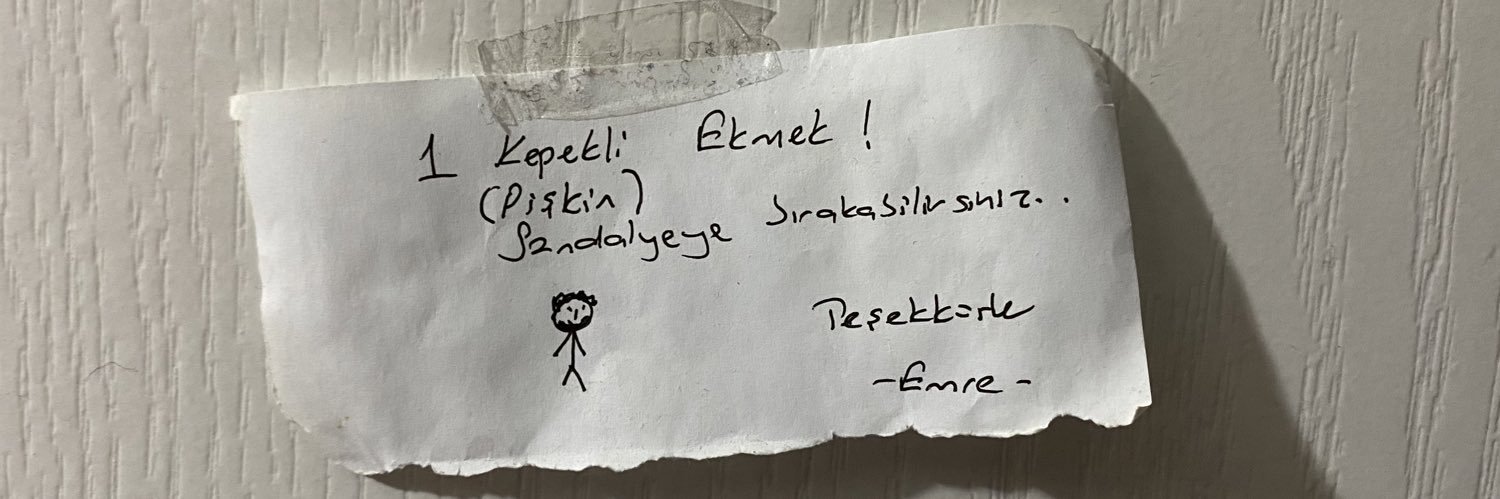 1 Kepekli Ekmek !
(Pişkin)
Sandalyeye bırakabilirsiniz..
Teşekkürler
-Emre-